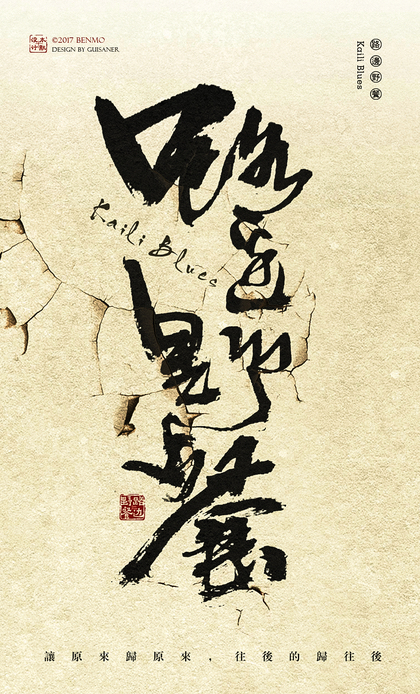 ©2017 BENMO
DESIGN BY GUISANER
路邊野餐
Kaili Blues
路邊野餐
Kaili Blues
讓原來歸原來，往後的歸往後